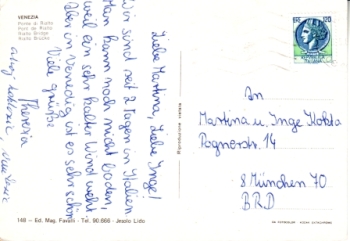 VENEZIA
Ponte di Rialto
Pont de Rialto
Rialto Bridge
Rialto Brücke
Liebe Martina, Liebe Inge!
Wir sind seit 2 Tagen in Italien
Man kann noch nicht baden,
weil ein sehr kalter Wind weht,
Aber in Venedig ist es sehr schön
Viele Grüße
Theresia
An
Martina u. Inge
Pognerstr. 14
8 München 70
BRD
148 - Ed. Mag. Favalli - Tel. 90.866 - Jesolo Lido
120